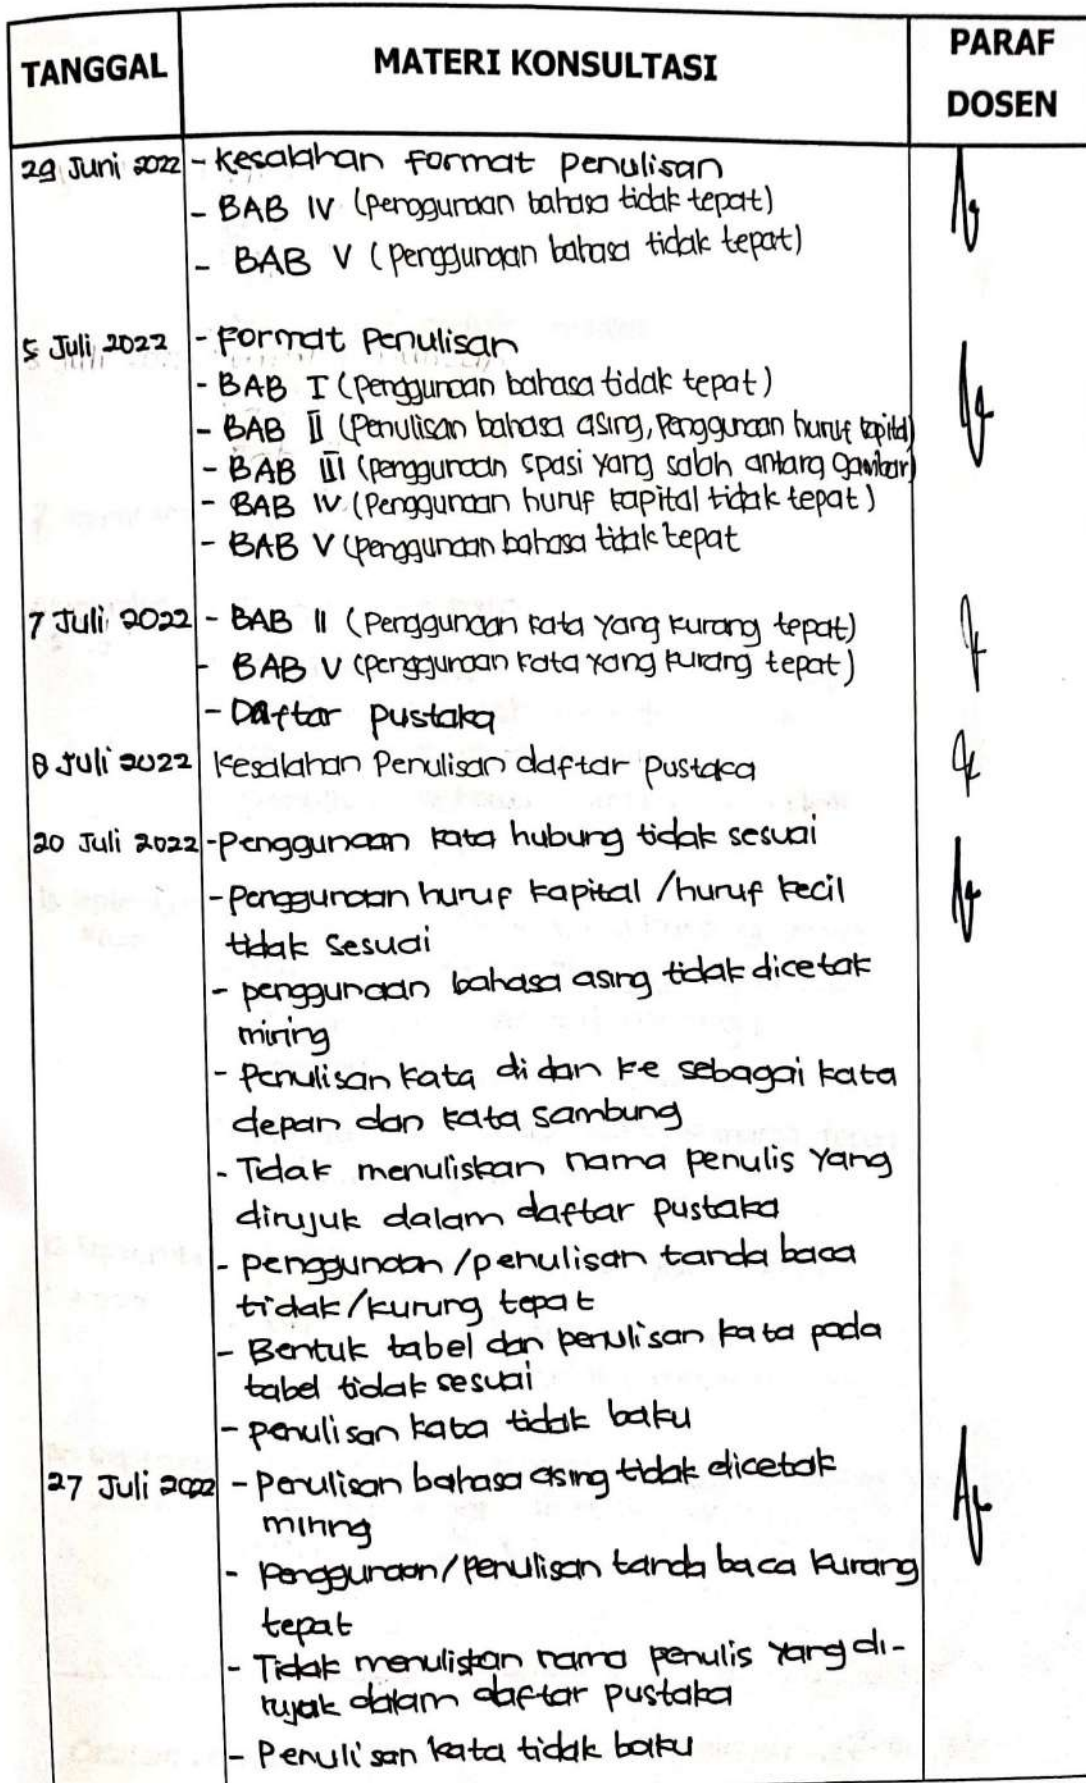 TANGGAL MATERI KONSULTASI PARAF DOSEN
29 Juni 2022 - Kesalahan format penulisan
- BAB IV (penggunaan bahasa tidak tepat)
- BAB V (penggunaan bahasa tidak tepat)
5 Juli 2022 - Format Penulisan
- BAB I (penggunaan bahasa tidak tepat)
- BAB II (Penulisan bahasa asing, Penggunaan huruf kapital)
- BAB III (penggunaan spasi yang salah antara gambar)
- BAB IV (Penggunaan huruf kapital tidak tepat)
- BAB V (penggunaan bahasa tidak tepat
7 Juli 2022 - BAB II (Penggunaan kata yang kurang tepat)
- BAB V (penggunaan kata yang kurang tepat)
- Daftar pustaka
8 Juli 2022 Kesalahan Penulisan daftar pustaca
20 Juli 2022 - Penggunaan kata hubung tidak sesuai
- Penggunaan huruf kapital / huruf kecil
tidak sesuai
- penggunaan bahasa asing tidak dicetak
miring
- Penulisan kata di dan ke sebagai kata
depan dan kata sambung
- Tidak menuliskan nama penulis yang
dirujuk dalam daftar pustaka
- penggunaan / penulisan tanda baca
tidak / kurung tepat
- Bentuk tabel dan penulisan kata pada
tabel tidak sesuai
- penulisan kata tidak baku
27 Juli 2022 - Penulisan bahasa asing tidak dicetak
miring
- Penggunaan / Penulisan tanda baca kurang
tepat
- Tidak menuliskan nama penulis yang di-
rujak dalam daftar pustaka
- Penulisan kata tidak baku